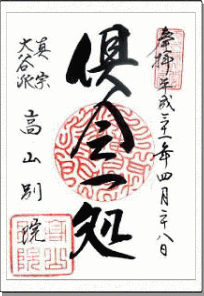 奉拝 平成二十一年四月二十八日
倶会一処
真宗
大谷派
高山別院